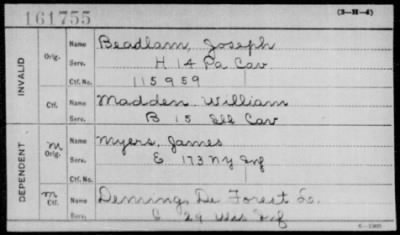 161755
(3-H-4)
INVALID
Orig. Name Beadlam, Joseph
Serv. H 14 Pa Cav
Ctf. No. 115959
Ctf. Name Madden William
Serv. B 15 Ills Cav
DEPENDENT
M Orig. Name Myers, James
Serv. E 173 NY Inf
m Ctf. Name Deming, De Forest
Serv. 29 Wis Inf